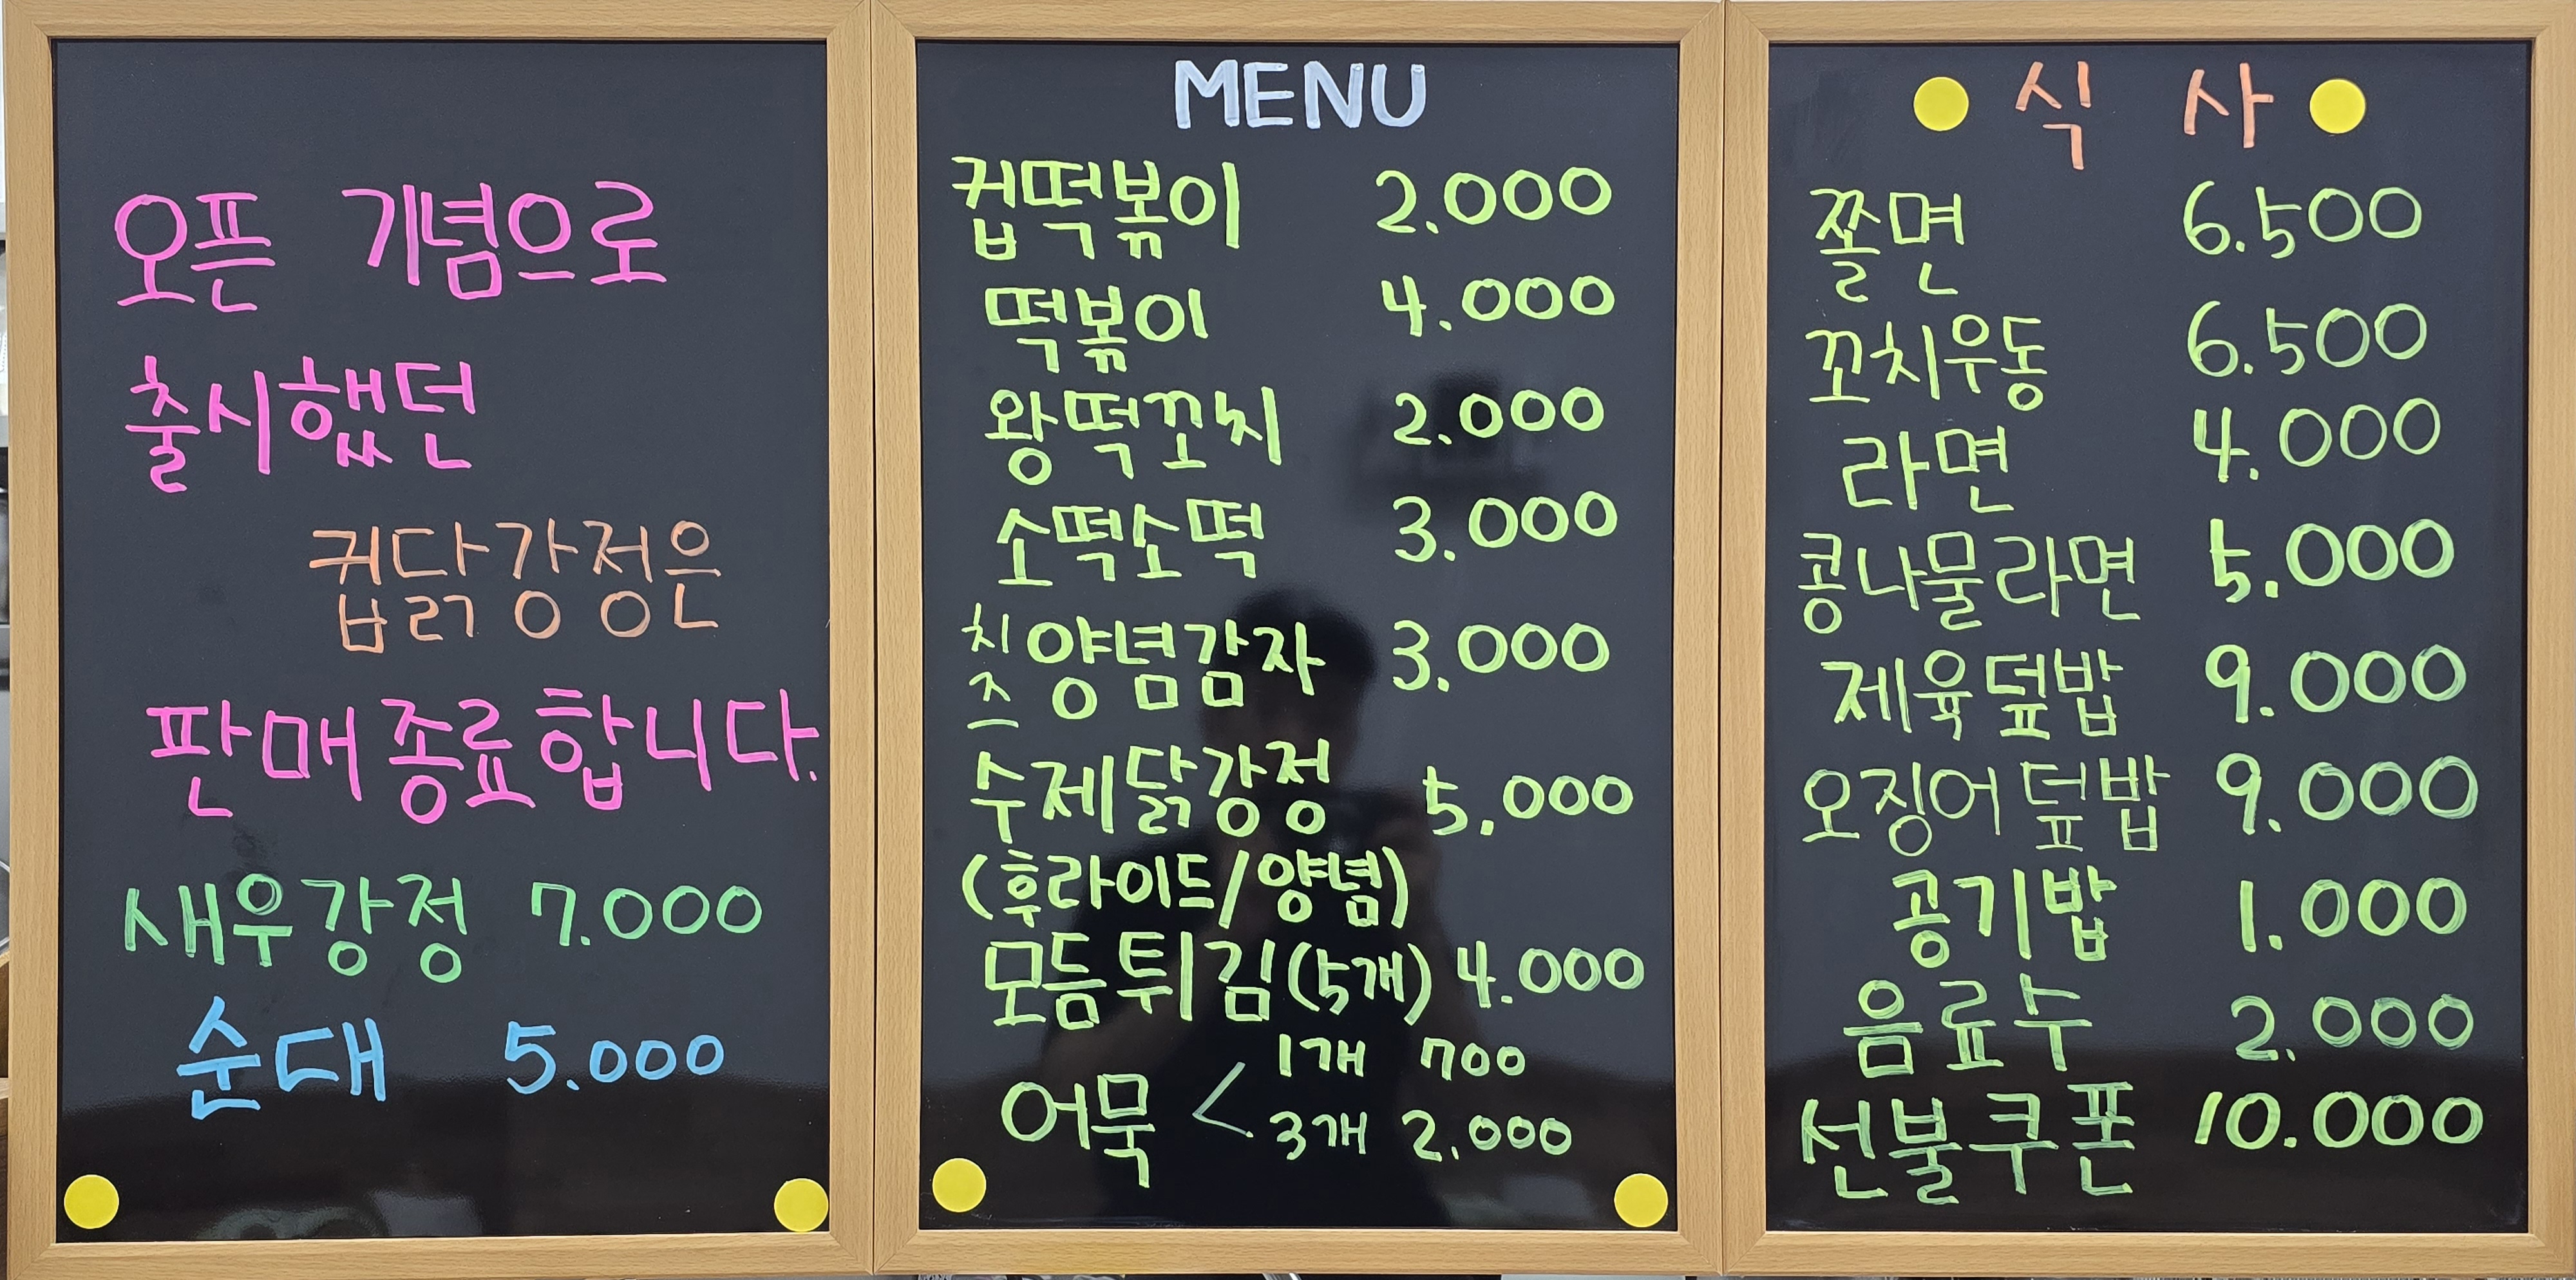 오픈 기념으로
출시했던
컵닭강정은
판매종료합니다.
새우강정 7.000
순대 5.000
MENU
컵떡볶이 2.000
떡볶이 4.000
왕떡꼬치 2.000
소떡소떡 3.000
치즈양념감자 3.000
수제닭강정 5.000
(후라이드/양념)
모듬튀김(5개) 4.000
어묵 < 1개 700
3개 2.000
식 사
쫄면 6.500
꼬치우동 6.500
라면 4.000
콩나물라면 5.000
제육덮밥 9.000
오징어덮밥 9.000
공기밥 1.000
음료수 2.000
선불쿠폰 10.000